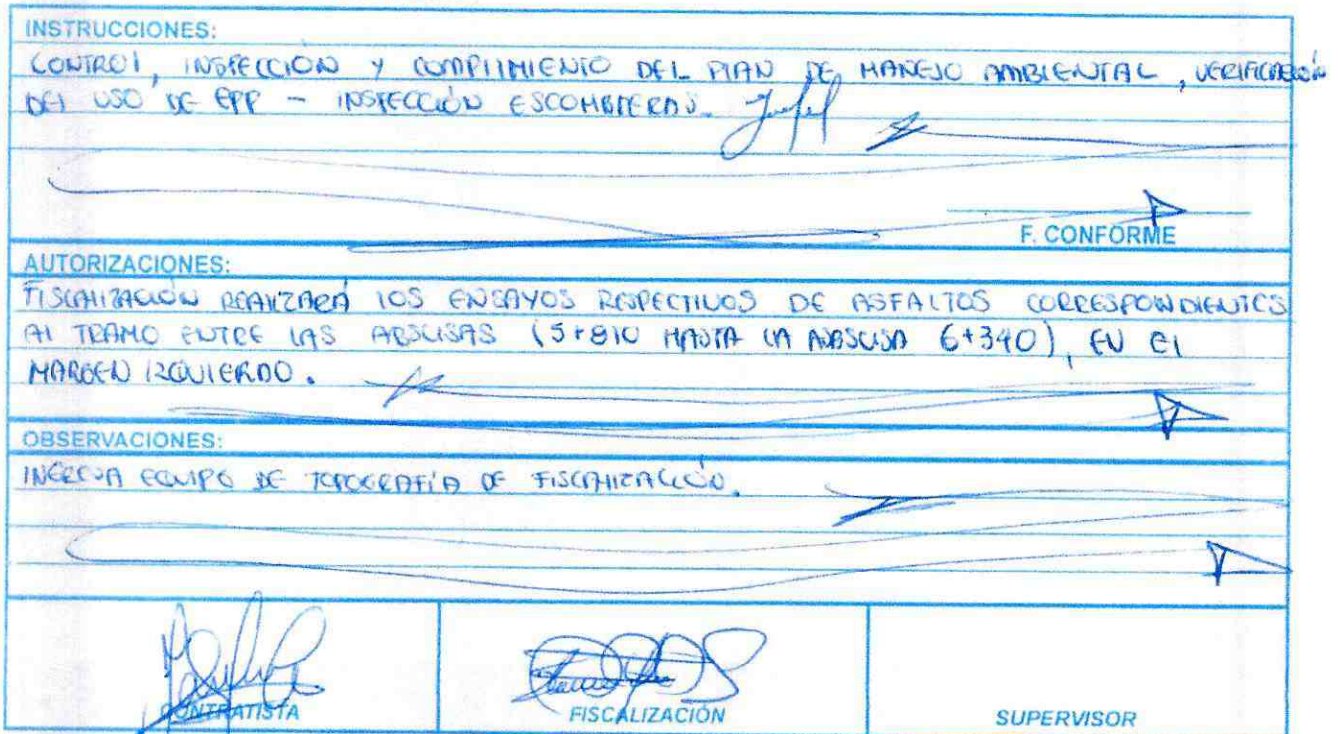 INSTRUCCIONES:
CONTROL, INSPECCIÓN Y CUMPLIMIENTO DEL PLAN DE MANEJO AMBIENTAL, VERIFICACIÓN
DEL USO DE EPP - INSPECCIÓN ESCOMBRERAS.
F. CONFORME
AUTORIZACIONES:
FISCALIZACIÓN REALIZARÁ LOS ENSAYOS RESPECTIVOS DE ASFALTOS CORRESPONDIENTES
AL TRAMO ENTRE LAS ABSCISAS (5+810 HASTA LA ABSCISA 6+340), EN EL
MARGEN IZQUIERDO.
OBSERVACIONES:
INGRESA EQUIPO DE TOPOGRAFÍA DE FISCALIZACIÓN.
CONTRATISTA
FISCALIZACIÓN
SUPERVISOR